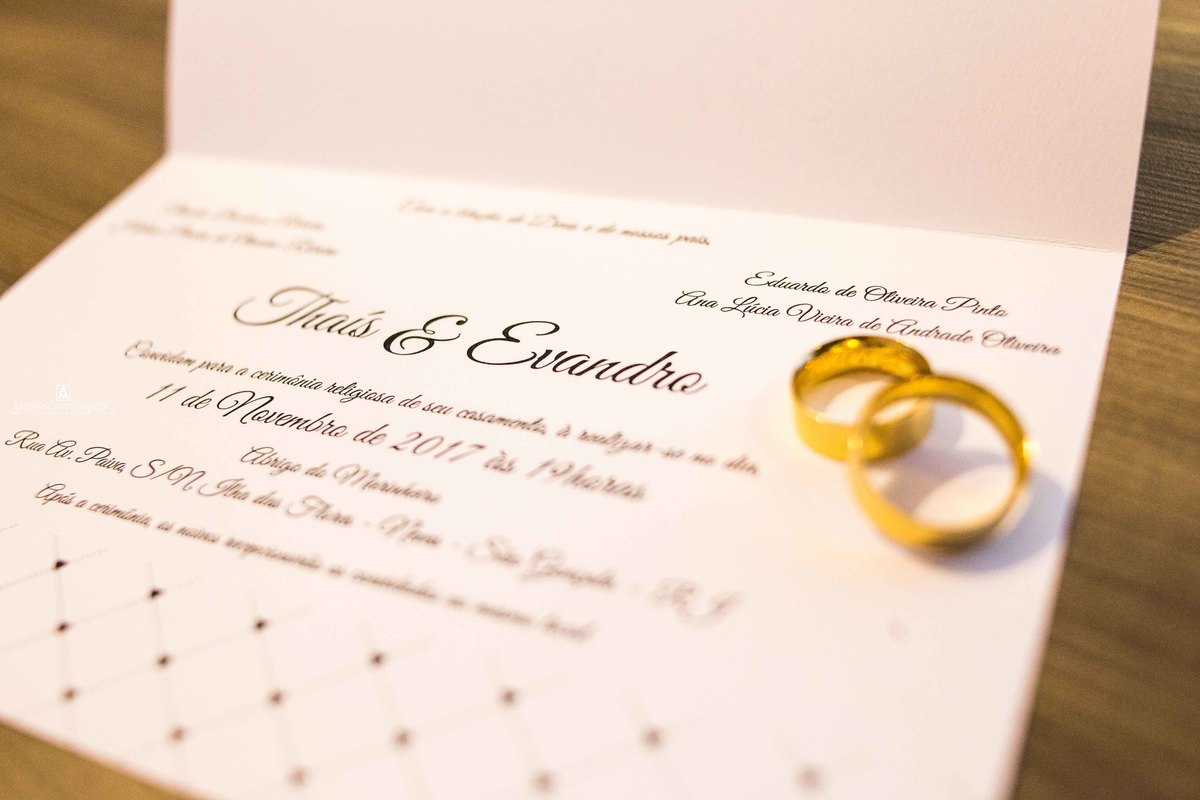 Com a bênção de Deus e de nossos pais,
Eduardo de Oliveira Pinto
Ana Lúcia Vieira de Andrade Oliveira
Thaís & Evandro
Convidam para a cerimônia religiosa de seu casamento, à realizar-se no dia
11 de Novembro de 2017 às 19horas
Abrigo do Marinheiro
Rua Av. Paiva, S/N, Ilha das Flores - Neves - São Gonçalo - RJ
Após a cerimônia, os noivos recepcionarão os convidados no mesmo local
ANDERSON MORGADO